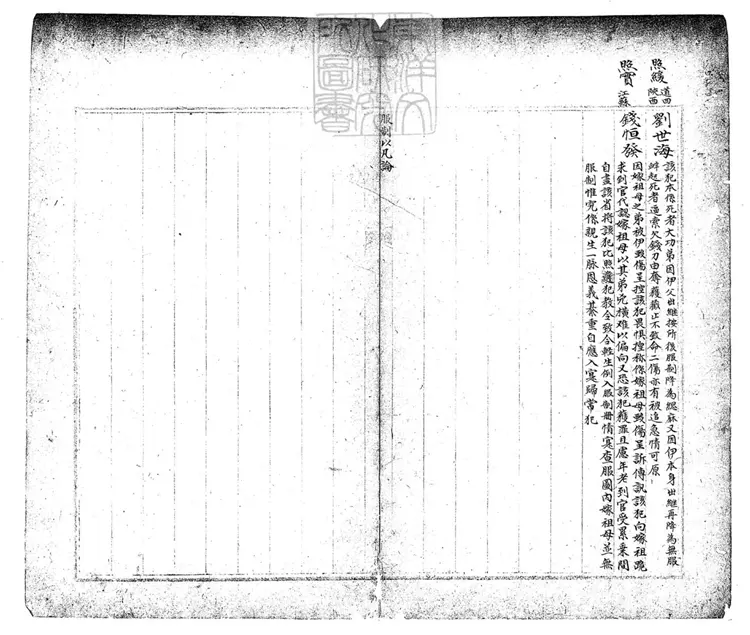 照緩 道四 陝西 劉世海 該犯本係死者大功弟因伊父出繼按所後服制降為緦麻又因伊本身出繼再降為無服
衅起死者逼索欠錢刀由奪獲戳止不致命二傷亦有被逼急情可原
照實 江蘇 錢恒發 因嫁祖母之弟被伊毆傷呈控該犯畏懼捏称係嫁祖母毆傷呈訴傳訊該犯向嫁祖跪
求到官代認嫁祖母以其弟兇橫难以偏向又恐該犯獲罪且慮年老到官受累乘間
自盡該省將該犯比照子孫犯教令致令輕生例入服制冊情實查服圖內嫁祖母並無
服制惟究係親生一脈恩義綦重自應入實歸常犯
服制以凡論